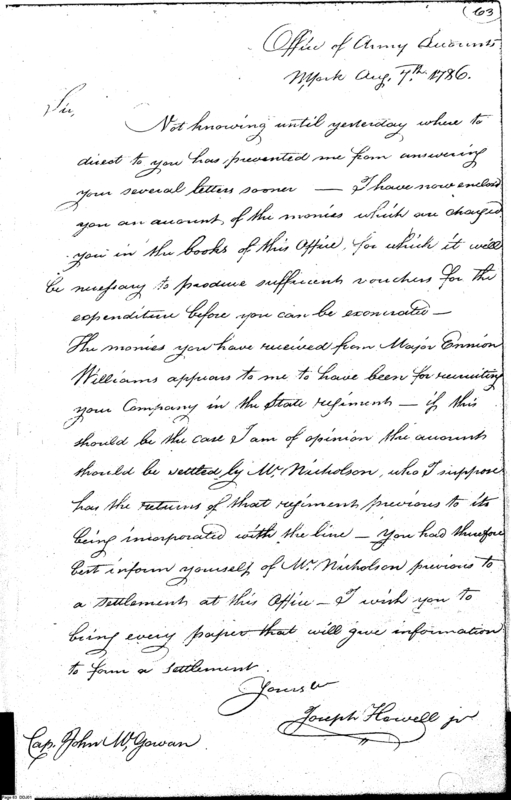 63
Office of Army Accounts
N,York Aug, 7th. 1786.
Sir,
Not knowing until yesterday where to
direct to you has prevented me from answering
your several letters sooner — I have now enclosed
you an account of the monies which are charged
you in the books of this Office, for which it will
be necessary to produce sufficient vouchers for the
expenditure before you can be exonerated —
The monies you have received from Major Ennion
Williams appears to me to have been for recruiting
your Company in the State regiment — if this
should be the case I am of opinion the accounts
should be settled by Mr. Nicholson, who I suppose
has the returns of that regiment previous to its
being incorporated with the line — you had therefore
best inform yourself of Mr. Nicholson previous to
a settlement at this Office — I wish you to
bring every paper that will give information
to form a settlement.
Yours &c
Joseph Howell jr
Cap. John McGowan